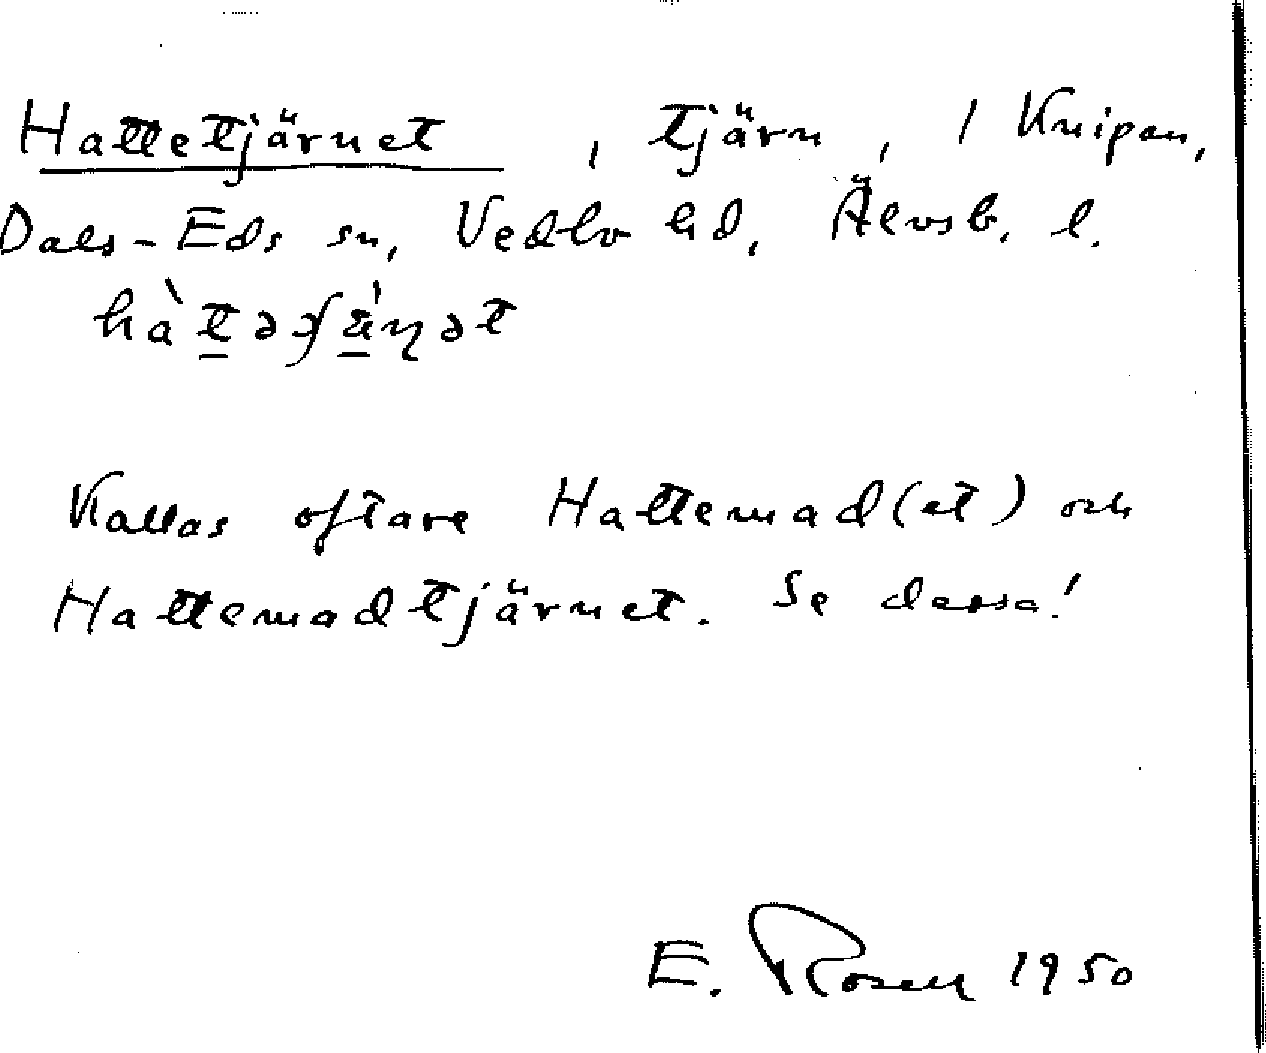 Hattetjärnet, tjärn, i Knipan,
Dals-Eds sn, Vedbo hd, Älvsb. l.
Kallas oftare Hattemad(et) och
Hattemadtjärnet. Se dessa!
E. Rosen 1950